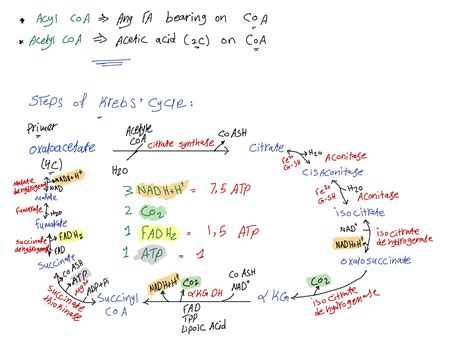 * Acyl CoA ⇒ Any FA bearing on CoA
* Acetyl CoA ⇒ Acetic acid (2C) on CoA
Steps of Krebs' Cycle:
Primer
oxaloacetate
(4C)
Acetyle
CoA
citrate synthase
CoASH
H2O
Citrate
H2O
Fe2+
G-SH
Aconitase
CisAconitase
Fe2+
G-SH
H2O
Aconitase
isocitrate
NAD+
NADH+H+
isocitrate
dehydrogenase
oxalosuccinate
CO2
isocitrate
dehydrogenase
αKG
CoASH
NAD+
αKGDH
CO2
NADH+H+
FAD
TPP
Lipoic Acid
Succinyl
CoA
ADP+Pi
ATP
CoASH
Succinate
thiokinase
Succinate
FAD
FADH2
Succinate
dehydrogenase
fumarate
H2O
fumarase
malate
NAD
NADH+H+
Malate
dehydrogenase
3 NADH+H+ = 7,5 ATP
2 CO2
1 FADH2 = 1,5 ATP
1 ATP = 1